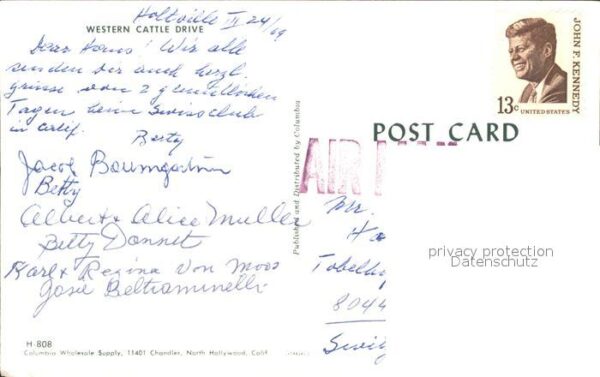 Holtville III 24/69
WESTERN CATTLE DRIVE
Dear Hans! Wir alle
senden Dir auch herzl.
Grüsse von 2 gemütlichen
Tagen beim Swissclub
in Calif.
Berty
Jacob Baumgartner
Betty
Albert & Alice Muller
Betty Donnet
Karl & Regina Von Moos
Josie Beltraminelli
H-808
Columbia Wholesale Supply, 11401 Chandler, North Hollywood, Calif
Published and Distributed by Columbia
JOHN F. KENNEDY
13c
UNITED STATES
POST CARD
AIR MAIL
Mr.
Ha
8044
privacy protection
Datenschutz